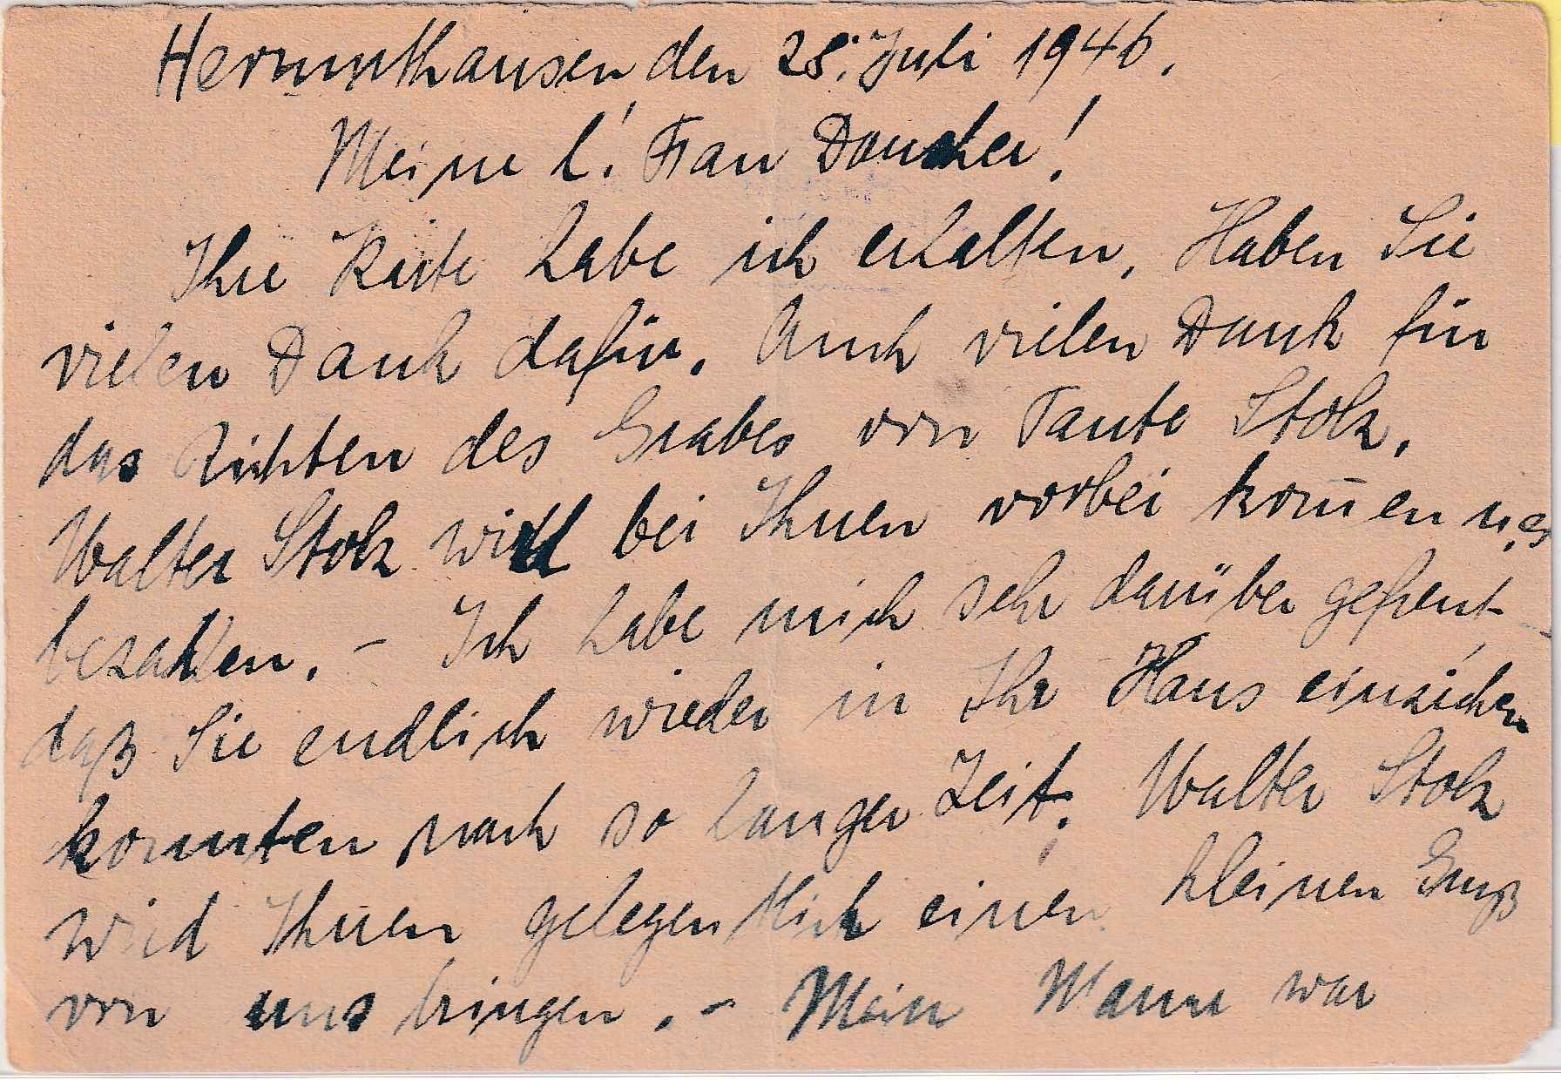 Hermuthausen den 28. Juli 1946.
Meine l! Frau Daucher!
Ihre Karte habe ich erhalten, Haben Sie
vielen Dank dafür. Auch vielen Dank für
das Richten des Grabes von Tante Stolz.
Walter Stolz will bei Ihnen vorbei kom̅en u. es
bezahlen. – Ich habe mich sehr darüber gefreut
daß Sie endlich wieder in Ihr Haus einziehen
konnten nach so langer Zeit. Walter Stolz
wird Ihnen gelegentlich einen kleinen Gruß
von uns bringen. – Mein Mann war